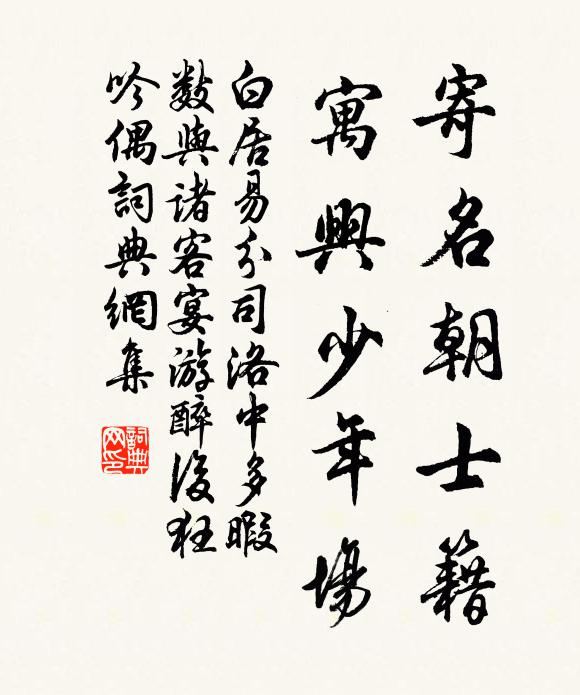 寄名朝士籍
寓興少年場
白居易分司洛中多暇
數與諸客宴游醉後狂
吟偶詞典網集
詞典
网印